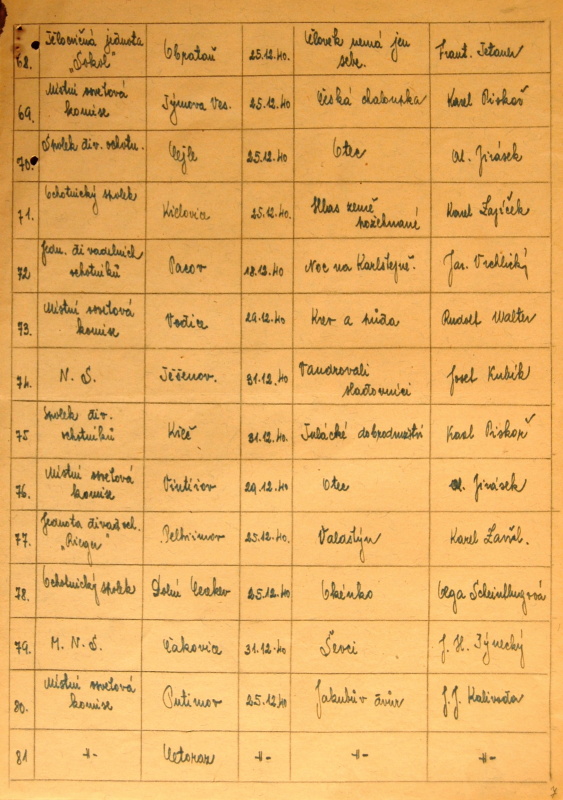 68. Tělocvičná jednota „Sokol“ Obrataň 25.12.40. Člověk nemá jen sebe. Frant. Tetauer
69. Místní osvětová komise Týmova Ves. 25.12.40 Česká chaloupka Karel Piskoř
70. Spolek div. ochotn. Vejle 25.12.40 Otec Al. Jirásek
71. Ochotnický spolek Křelovice 25.12.40. Hlas země požehnané Karel Lažíček
72 Jedn. divadelních ochotníků Pacov 18.12.40 Noc na Karlštejně. Jar. Vrchlický
73. Místní osvětová komise Vodice 29.12.40 Krev a půda Rudolf Walter
74. N. S. Těšenov. 31.12.40 Vandrovali sladovníci Josef Kubík
75 Spolek div. ochotníků Křeč 31.12.40. Tulácké dobrodružství Karel Piskoř
76. Místní osvětová komise Vintířov 29.12.40 Otec Al. Jirásek
77. Jednota divad. och. „Rieger“ Pelhřimov 25.12.40. Valdštýn Karel
78. Ochotnický spolek Dolní Cerekev 25.12.40 Okénko Olga Scheinpflugová
79. M. N. S. Čakovice 31.12.40 Ševci J. H. Týnecký
80. Místní osvětová komise Putimov 25.12.40 Jakubův dvůr J. J. Kalivoda
81 -"- Cetoraz -"- -"- -"-